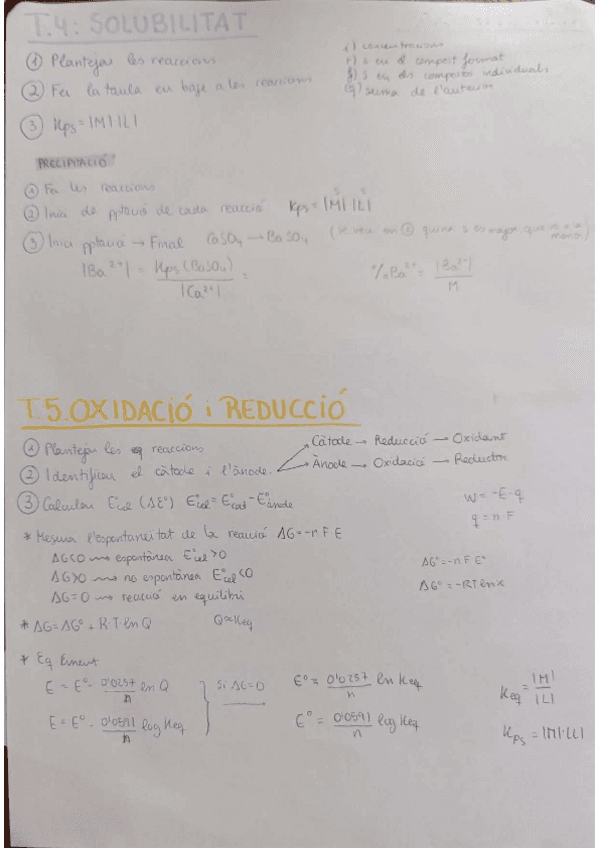 T.4: SOLUBILITAT
① Plantejar les reaccions
② Fer la taula en base a les reaccions
③ Kps = |M| |L|
i) concentracions
r) s en el compost format
f) s en els compostos individuals
q) suma de l'anterior
PRECIPITACIÓ:
① Fa les reaccions
② Inici de pptació de cada reacció Kps = |M| |L|
③ Inici pptació → Final CaSO4 → BaSO4 (se veu en ② quina s es major, que va a la menor)
|Ba²⁺| = Kps (BaSO4) / |Ca²⁺| =
% Ba²⁺ = |Ba²⁺| / M
T.5. OXIDACIÓ i REDUCCIÓ
① Plantejar les reaccions
② Identificar el càtode i l'ànode.
Càtode → Reducció → Oxidant
Ànode → Oxidació → Reductor
③ Calcular E°cel (ΔE°) E°cel = E°cat - E°ànode
W = -E·q
q = n F
* Mesura l'espontaneitat de la reacció ΔG = -n F E
ΔG<0 → espontànea E°cel >0
ΔG>0 → no espontànea E°cel <0
ΔG=0 → reacció en equilibri
ΔG° = -n F E°
ΔG° = -RT ln K
* ΔG = ΔG° + R·T·ln Q Q∝Keq
* Eq Ernest
E = E° - 0'0257/n ln Q
E = E° - 0'0591/n log Keq
Si ΔG=0
E° = 0'0257/n ln Keq
E° = 0'0591/n log Keq
Keq = |M| / |L|
Kps = |M|·|L|